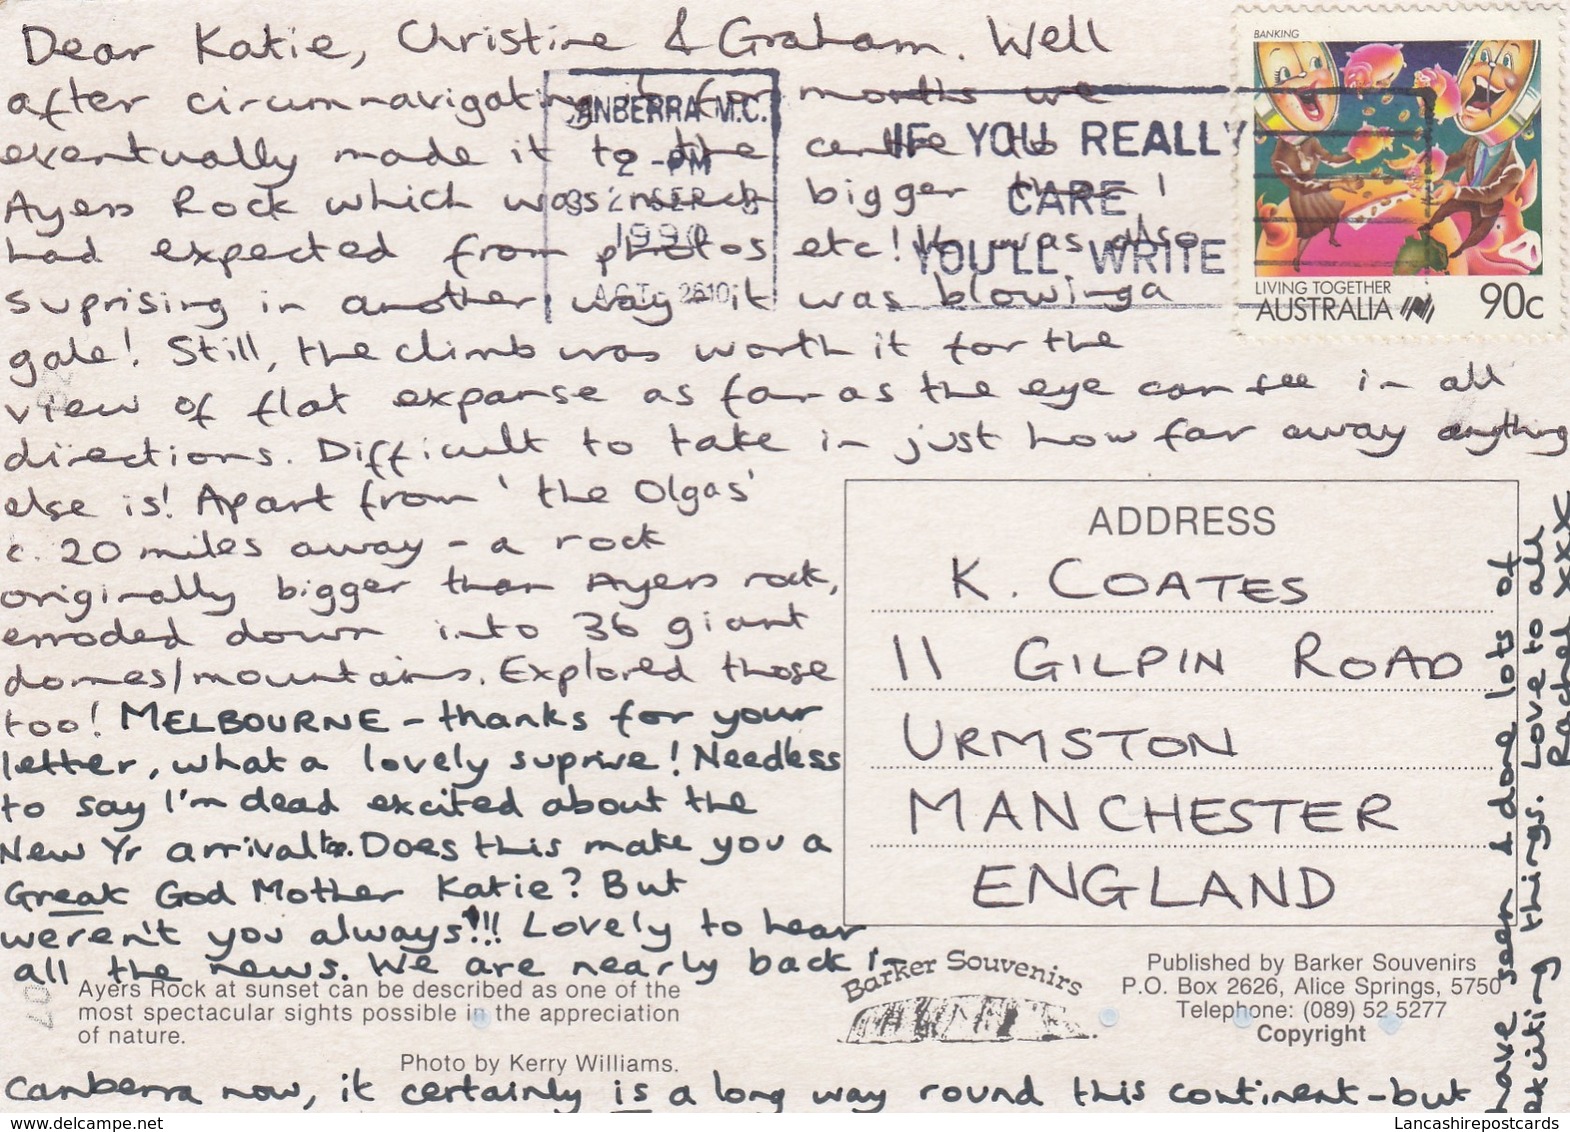 Dear Katie, Christine & Graham. Well
after circumnavigating it for months we
eventually made it to the centre to
Ayers Rock which was much bigger than I
had expected from photos etc! It was also
suprising in another way - it was blowing a
gale! Still, the climb was worth it for the
view of flat expanse as far as the eye can see in all
directions. Difficult to take in just how far away anything
else is! Apart from 'the Olgas'
c. 20 miles away - a rock
originally bigger than Ayers rock,
erroded down into 36 giant
domes/mountains. Explored those
too! MELBOURNE - thanks for your
letter, what a lovely suprise! Needless
to say I'm dead excited about the
New Yr arrival. Does this make you a
Great God Mother Katie? But
weren't you always!!! Lovely to hear
all the news. We are nearly back in
Canberra now, it certainly is a long way round this continent - but
have seen & done lots of
exciting things. Love to all
Rachel xxx
CANBERRA M.C.
2 - PM
1990
ACT. 2610
IF YOU REALLY
CARE
YOU'LL WRITE
BANKING
LIVING TOGETHER
AUSTRALIA 90c
ADDRESS
K. COATES
11 GILPIN ROAD
URMSTON
MANCHESTER
ENGLAND
Ayers Rock at sunset can be described as one of the
most spectacular sights possible in the appreciation
of nature.
Photo by Kerry Williams.
Barker Souvenirs
Published by Barker Souvenirs
P.O. Box 2626, Alice Springs, 5750
Telephone: (089) 52 5277
Copyright
www.delcampe.net
Lancashirepostcards